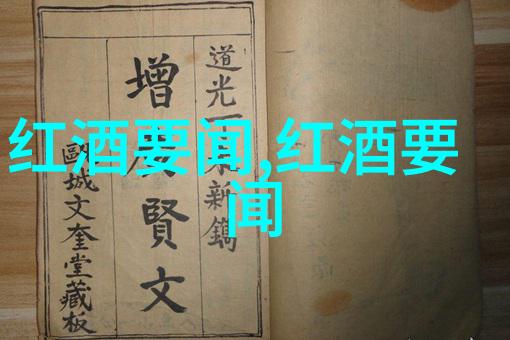 红酒要闻,红酒要
闻
道光
新鐫
增
賢文
甌城文奎堂藏板